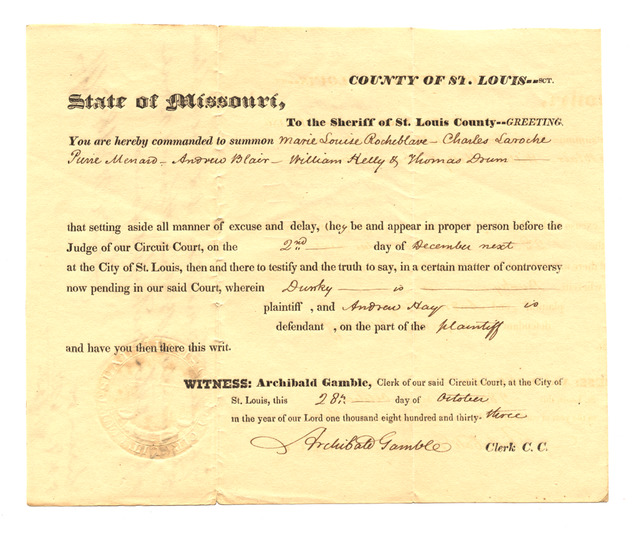 COUNTY OF ST. LOUIS--SCT.
State of Missouri,
To the Sheriff of St. Louis County--GREETING.
You are hereby commanded to summon Marie Louise Rocheblave - Charles Laroche
Pierre Menard - Andrew Blair - William Kelly & Thomas Drum
that setting aside all manner of excuse and delay, they be and appear in proper person before the
Judge of our Circuit Court, on the 2nd day of December next
at the City of St. Louis, then and there to testify and the truth to say, in a certain matter of controversy
now pending in our said Court, wherein Dunky - is
plaintiff , and Andrew Hay - is
defendant , on the part of the plaintiff
and have you then there this writ.
WITNESS: Archibald Gamble, Clerk of our said Circuit Court, at the City of
St. Louis, this 28th day of October
in the year of our Lord one thousand eight hundred and thirty-three
Archibald Gamble Clerk C. C.